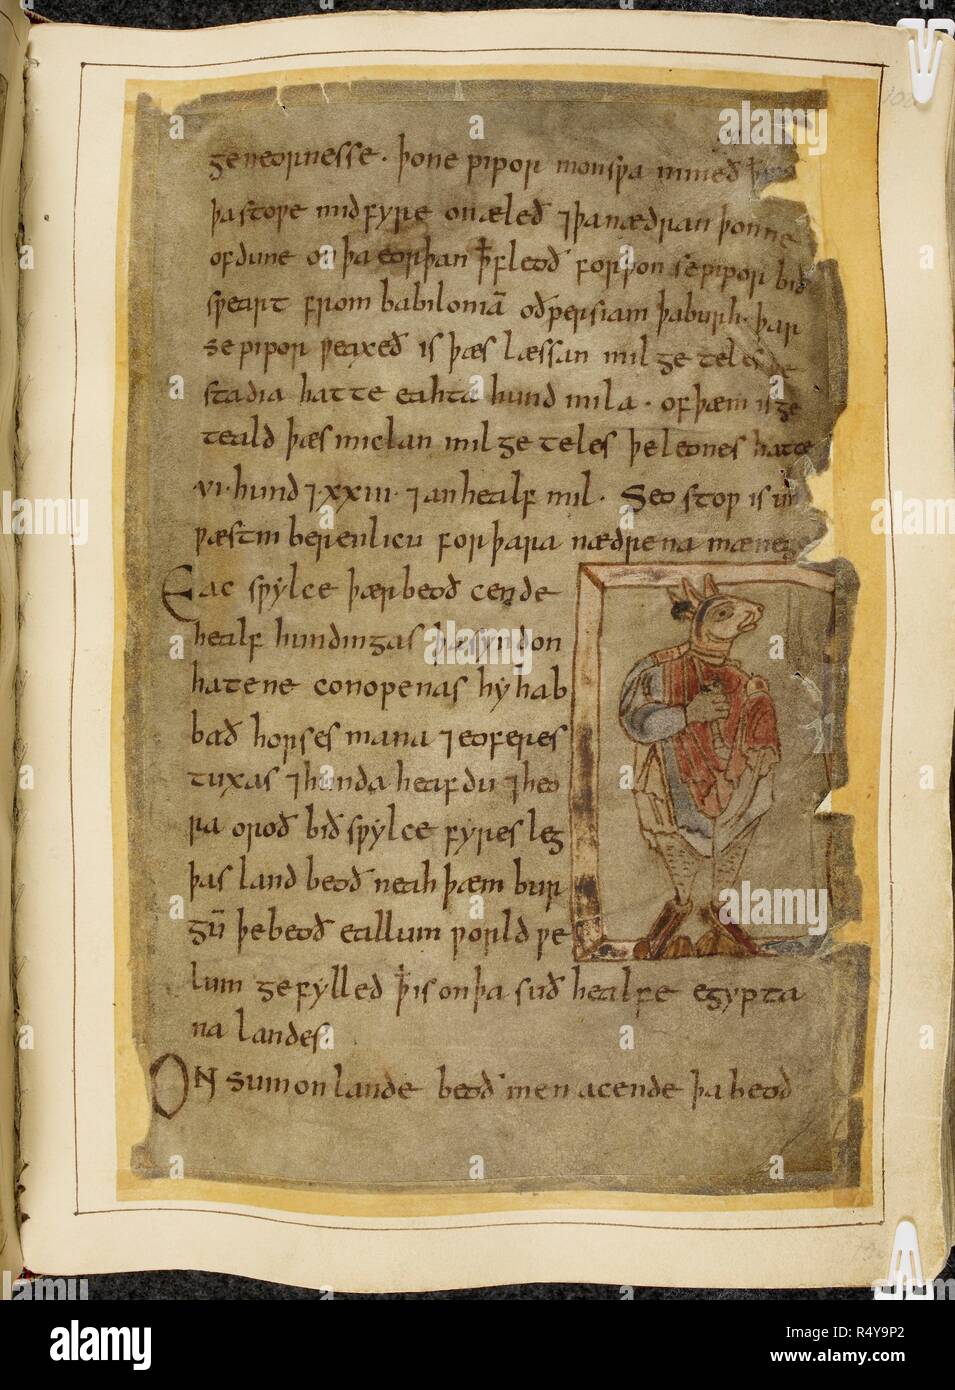 geneornesse · þone pipor mon swa nimeð
þa stowe mid fyre onæleð ⁊ þa nædran þonne
ofdune on þa eorþan ꝥ fleoð forþon se pipor bið
sweart from babiloniā oð persiam þa burh · þær
se pipor weaxeð is þæs læssan milgeteles þe
stadia hatte eahta hund mila · of þæm is ge
teald þæs miclan milgeteles þe leones hatte
vi · hund ⁊ · xxiii · ⁊ an healf mil · Seo stow is un
wæstmberenlicu for þara nædrena mænego
Eac swylce þær beoð cende
healf hundingas þa syndon
hatene conopenas hy hab
bað horses mana ⁊ eoferes
tuxas ⁊ hunda heafdu ⁊ heo
ra oroð bið swylce fyres leg
þas land beoð neah þæm bur
gū þe beoð eallum worldwe
lum gefylled ꝥ is on þa suð healfe egypta
na landes
ON sumon lande beoð men acende þa beoð
alamy
Image ID: R4Y9P2
www.alamy.com